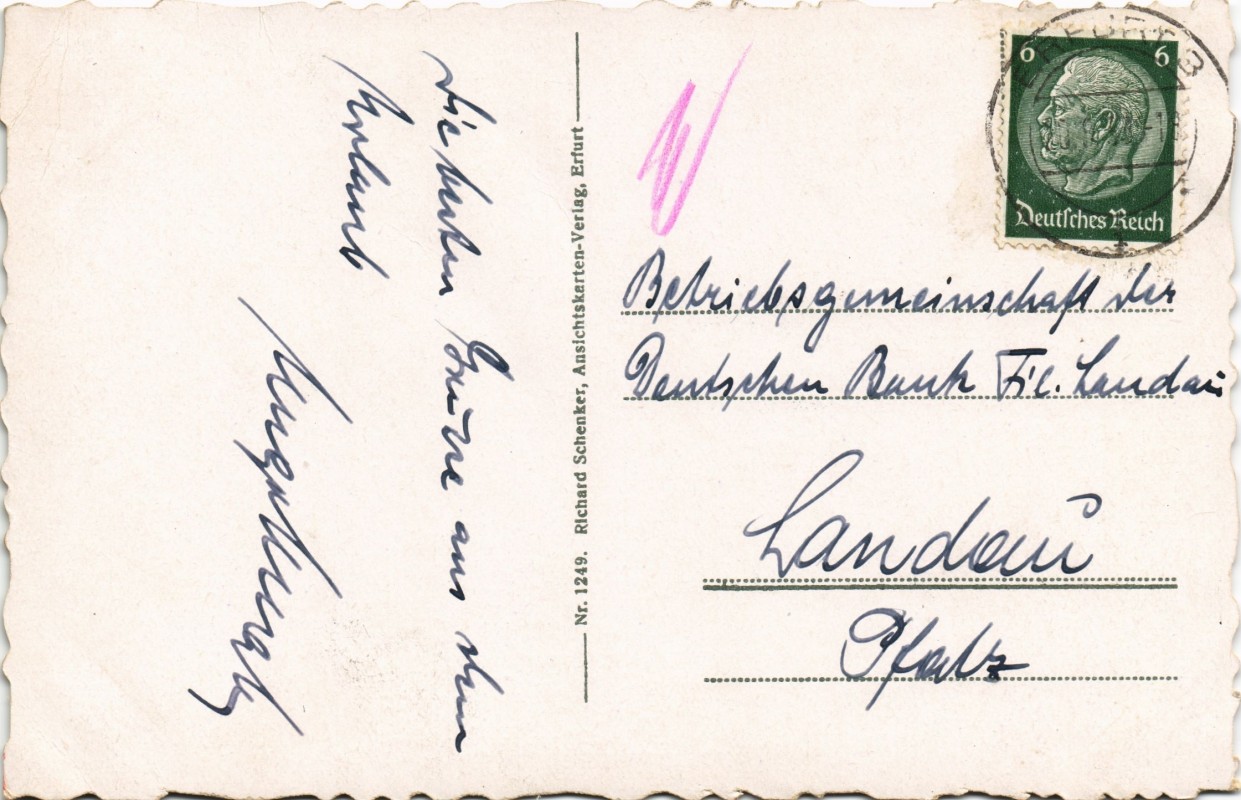 Die besten Grüsse aus dem
Urlaub
Nr. 1249. Richard Schenker, Ansichtskarten-Verlag, Erfurt
6 6
Deutsches Reich
Betriebsgemeinschaft der
Deutschen Bank Fil. Landau
Landau
Pfalz